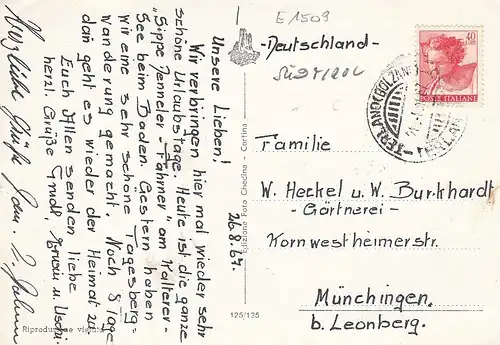 E 1509
-Deutschland-
Südtirol
40
POSTE ITALIANE
TERLANO (BOLZANO)
Unsere Lieben!
Wir verbringen hier mal wieder sehr
schöne Urlaubstage. Heute ist die ganze
"Sippe Jenneler-Fahrner" am Kalterer-
See beim Baden. Gestern haben
wir eine sehr schöne Tagesberg-
Wanderung gemacht. Noch 8 Tage
dann geht es wieder der Heimat zu.
Euch Allen senden liebe
herzl. Grüße Gudi, Trudi u. Uschi
Herzliche Grüße
26.8.67.
Edizione Foto Ghedina - Cortina
125/135
Riproduzione vietata
Familie
W. Heckel u. W. Burkhardt
-Gärtnerei-
Kornwestheimerstr.
Münchingen
b. Leonberg.